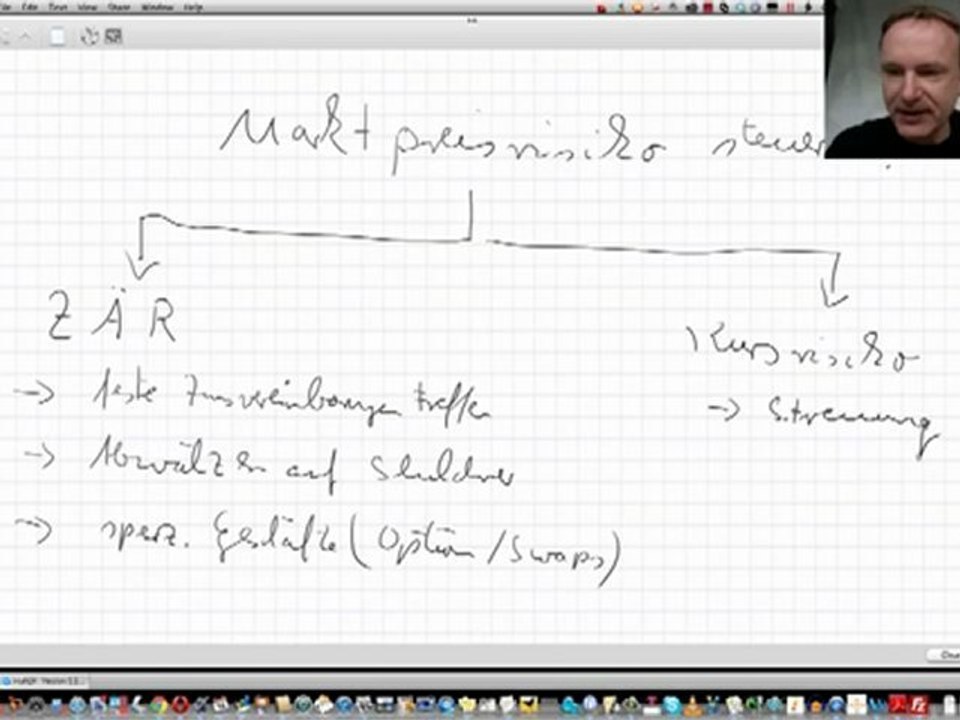 File Edit Text View Share Window Help
Marktpreisrisiko steuer
ZÄR
Kursrisiko
→ feste Zinsvereinbarungen treffen
→ Streuung
→ Abwälzen auf Schuldner
→ spez. Geschäfte (Option/Swaps)